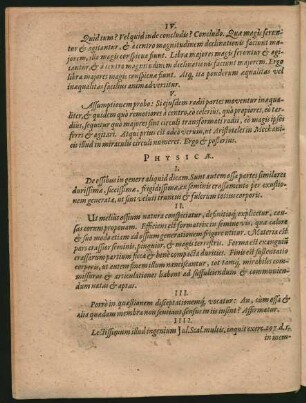 IV.
Quid tum? Vel quid inde concludis? Concludo. Quæ magis feruntur
& agitantur, & à centro magnitudinem declinationis faciunt majorem,
illa magis conspicua sunt. Libra majores magis feruntur & agitantur,
& à centro magnitudinem declinationis faciunt majorem. Ergo
libra majores magis conspicuæ sunt. Atq, ita ponderum æqualitas vel
inæqualitas facilius animadvertitur.
V.
Assumptionem probo: Si ejusdem radii partes moventur inæqualiter,
& quidem quò remotiores à centro, eò celeriùs, quò propiores, eò tardius,
sequitur quò majores sint circuli transformati radii, eò magis ipsos
ferri & agitari. Atqui prius est adeò verum, ut Aristoteles in
istud in miraculis circuli numeret. Ergo & posterius.
PHYSICÆ.
I.
De ossibus in genere aliquid dicam. Sunt autem ossa partes similares
durissimæ, siccissimæ, frigidissimæ, ex seminis crassamento per exustionem
generatæ, ut sint veluti truncus & fulcrum totius corporis.
II.
Ut melius ossium natura conspiciatur, definitioq, explicetur, causas
eorum proponam. Efficiens est formatrix in seminibus vis, quæ calore
& suo modo etiam ad ossium generationem frigore utitur. Materia est
pars crassior seminis, pinguis, & magis terrestris. Forma est exanguium
crassarum partium sicca & bene compacta durities. Finis est sustentatio
corporis, ut autem suum usum nanciscantur, tot tamq, mirabiles commissuras
& articulationes habent ad sustinendum & communiendum
natas & aptas.
III.
Porrò in quæstionem disceptationemq, vocatur: An, cùm ossa &
alia quædam membra non sentiant, sensus in iis insint? Affirmatur.
IIII.
Lectissimum illud ingenium Jul. Scal. multis, inquit exerc. 107. d. 1.
in incom-